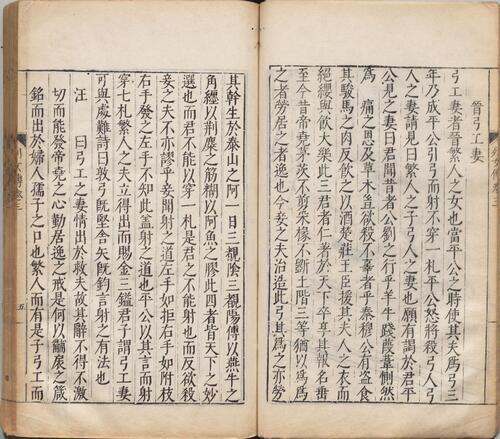 晉弓工妻
弓工妻者晉繁人之女也當平公之時使其夫爲弓三
年乃成平公引弓而射不穿一札平公怒將殺弓人弓
人之妻請見曰繁人之子弓人之妻也願有謁於君平
公見之妻曰君聞昔者公劉之行乎羊牛踐葭葦惻然
爲痛之恩及草木豈欲殺不辜者乎秦穆公有盜食
其駿馬之肉反飲之以酒楚莊王臣援其夫人之衣而
絕纓與飲大樂此三君者仁著於天下卒享其報名垂
至今昔帝堯茅茨不剪采椽不斲土階三等猶以爲爲
之者勞居之者逸也今妾之夫治造此弓其爲之亦勞
其幹生於泰山之阿一日三覩陰三覩陽傅以燕牛之
角纏以荆麋之筋糊以阿魚之膠此四者皆天下之妙
選也而君不能以穿一札是君之不能射也而反欲殺
妾之夫不亦謬乎妾聞射之道左手如拒右手如附枝
右手發之左手不知此蓋射之道也平公以其言而射
穿七札繁人之夫立得出而賜金三鎰君子謂弓工妻
可與處難詩曰敦弓旣堅舍矢旣鈞言射之有法也
汪曰弓工之妻情出於救夫故其辭不得不激
切而能發帝堯之心勤居逸之戒是何以黼扆之箴
銘而出於婦人孺子之口也繁人而有是子弓工而
五